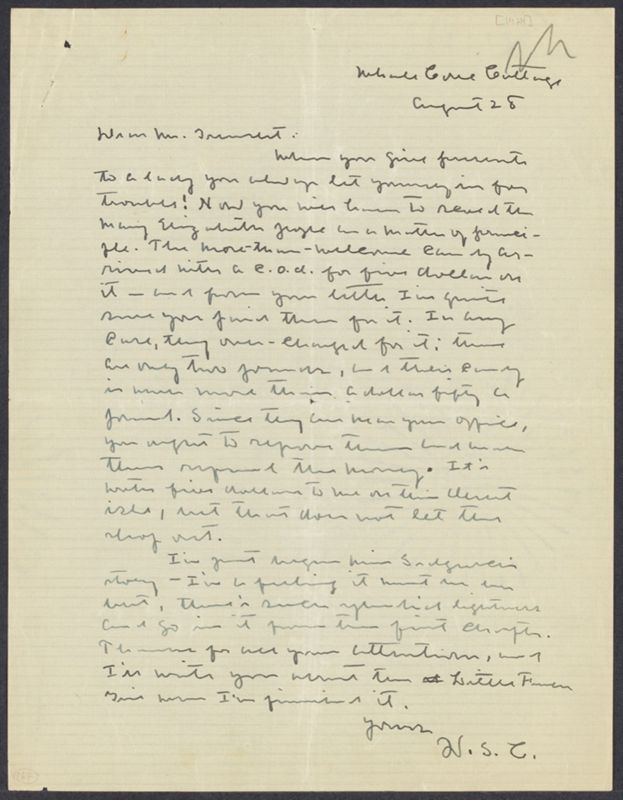 [1924]
Whale Cove Cottage
August 28
Dear Mr. Greenslet:
When you give presents
to a lady you always let yourself in for
trouble! Now you will have to the
Mary Elizabeth people as a matter of princi-
ple. The more-than-welcome candy ar-
rived with a c.o.d. for five dollars on
it — and from your letter I'm quite
sure you paid them for it. In any
case, they over-charged for it; there
are only two pounds, and their candy
is never more than a dollar fifty a
pound. Since they are near your office,
you ought to reprove them and make
them refund the money. It's
worth five dollars to me on this desert
isle, but that does not let the
shop out.
I've just begun Miss Sedgwick's
story — I've a feeling it must be her
best, there's such splendid lightness
and go in it from the first chapter.
Thank you for all your attentions, and
I'll write you about the Little French
Girl when I've finished it.
Yours
W. S. C.